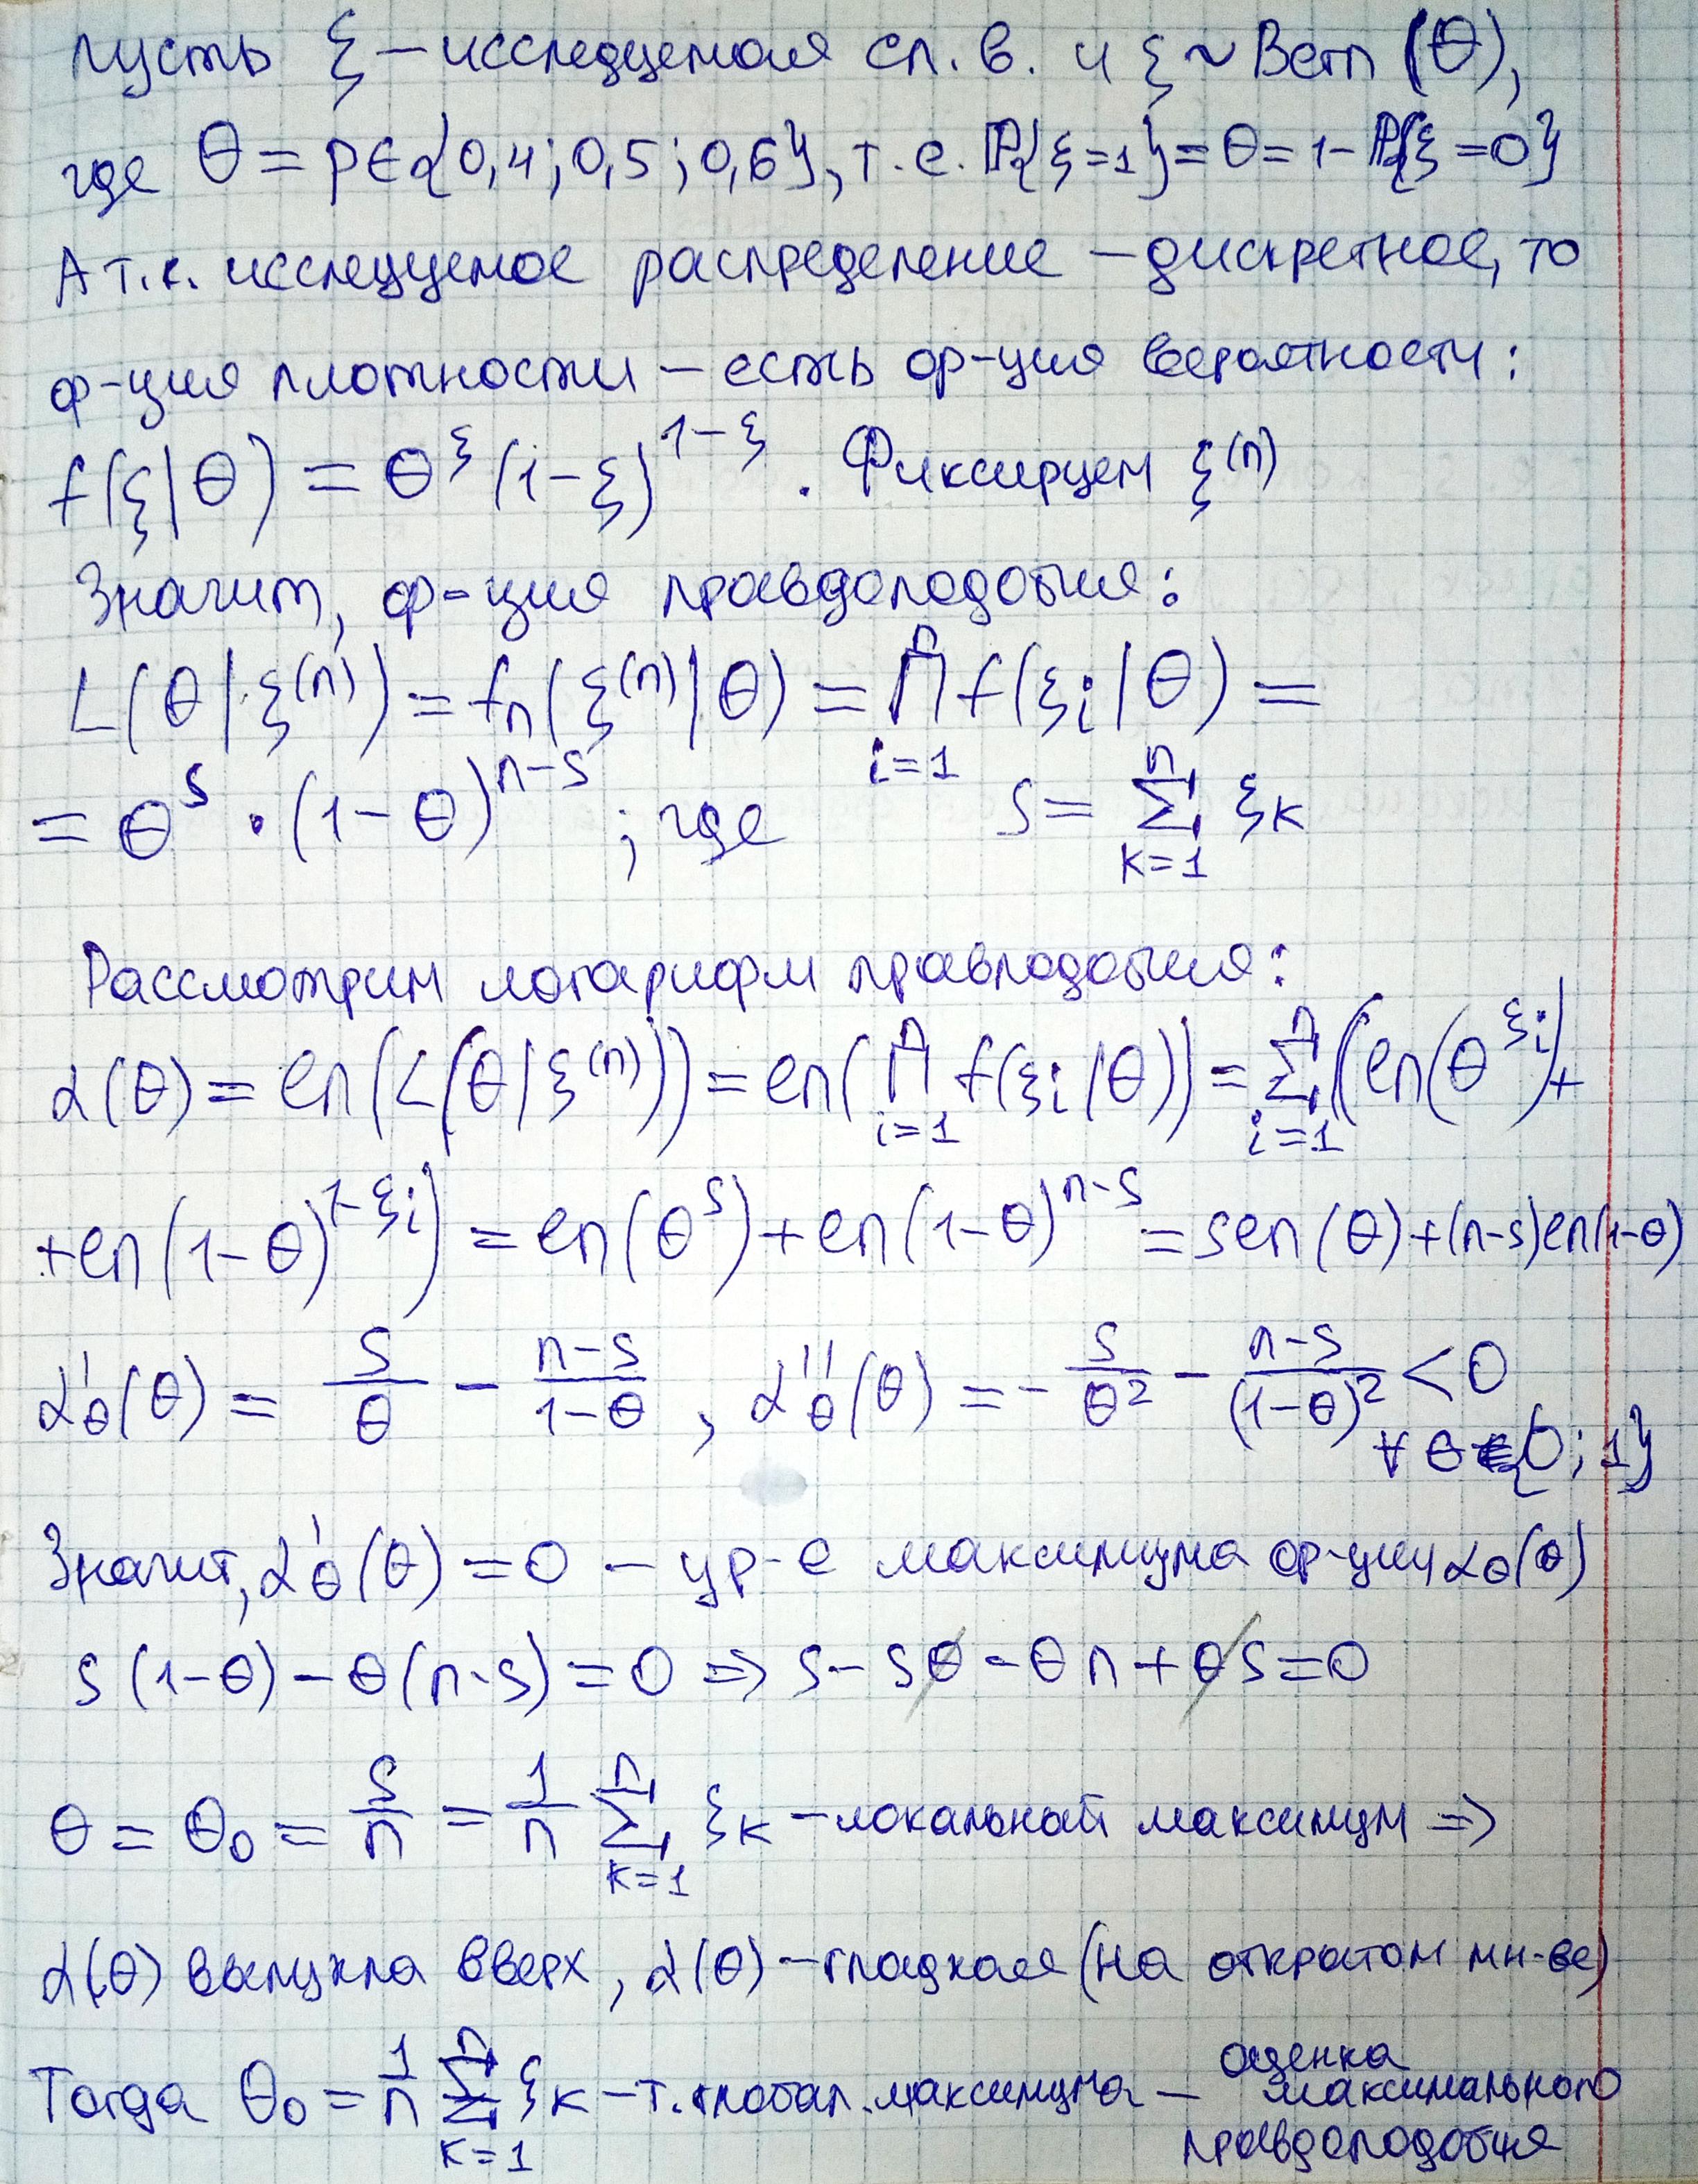 Пусть ξ – исследуемая сл. в. и ξ ~ Bern (θ),
где θ = p ∈ {0,4; 0,5; 0,6}, т.е. ℙ{ξ=1} = θ = 1 – ℙ{ξ=0}
А т.к. исследуемое распределение – дискретное, то
ф-ция плотности – есть ф-ция вероятности:
f(ξ|θ) = θ^ξ (1-ξ)^{1-ξ}. Фиксируем ξ^{(n)}
Значит, ф-ция правдоподобия:
L(θ|ξ^{(n)}) = f_n(ξ^{(n)}|θ) = ∏_{i=1}^{n} f(ξ_i|θ) =
= θ^s · (1-θ)^{n-s}; где s = ∑_{k=1}^{n} ξ_k
Рассмотрим логарифм правподобия:
α(θ) = ln(L(θ|ξ^{(n)})) = ln(∏_{i=1}^{n} f(ξ_i|θ)) = ∑_{i=1}^{n} (ln(θ^{ξ_i}) +
+ ln(1-θ)^{1-ξ_i}) = ln(θ^s) + ln(1-θ)^{n-s} = s ln(θ) + (n-s) ln(1-θ)
α'_θ(θ) = s/θ – (n-s)/(1-θ), α''_θ(θ) = – s/θ² – (n-s)/(1-θ)² < 0
∀ θ ∈ {0; 1}
Значит, α'_θ(θ) = 0 – ур-е максимума ф-ции α_θ(θ)
s(1-θ) – θ(n-s) = 0 ⇒ s – sθ – θn + θs = 0
θ = θ_0 = s/n = 1/n ∑_{k=1}^{n} ξ_k – локальный максимум ⇒
α(θ) выпукла вверх, α(θ) – гладкая (на открытом мн-ве)
Тогда θ_0 = 1/n ∑_{k=1}^{n} ξ_k – т. глобал. максимума – оценка
максимального
правдоподобия